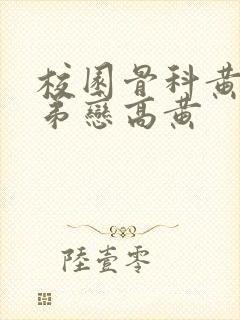 校園骨科黃
弟戀高黃
陸壹零